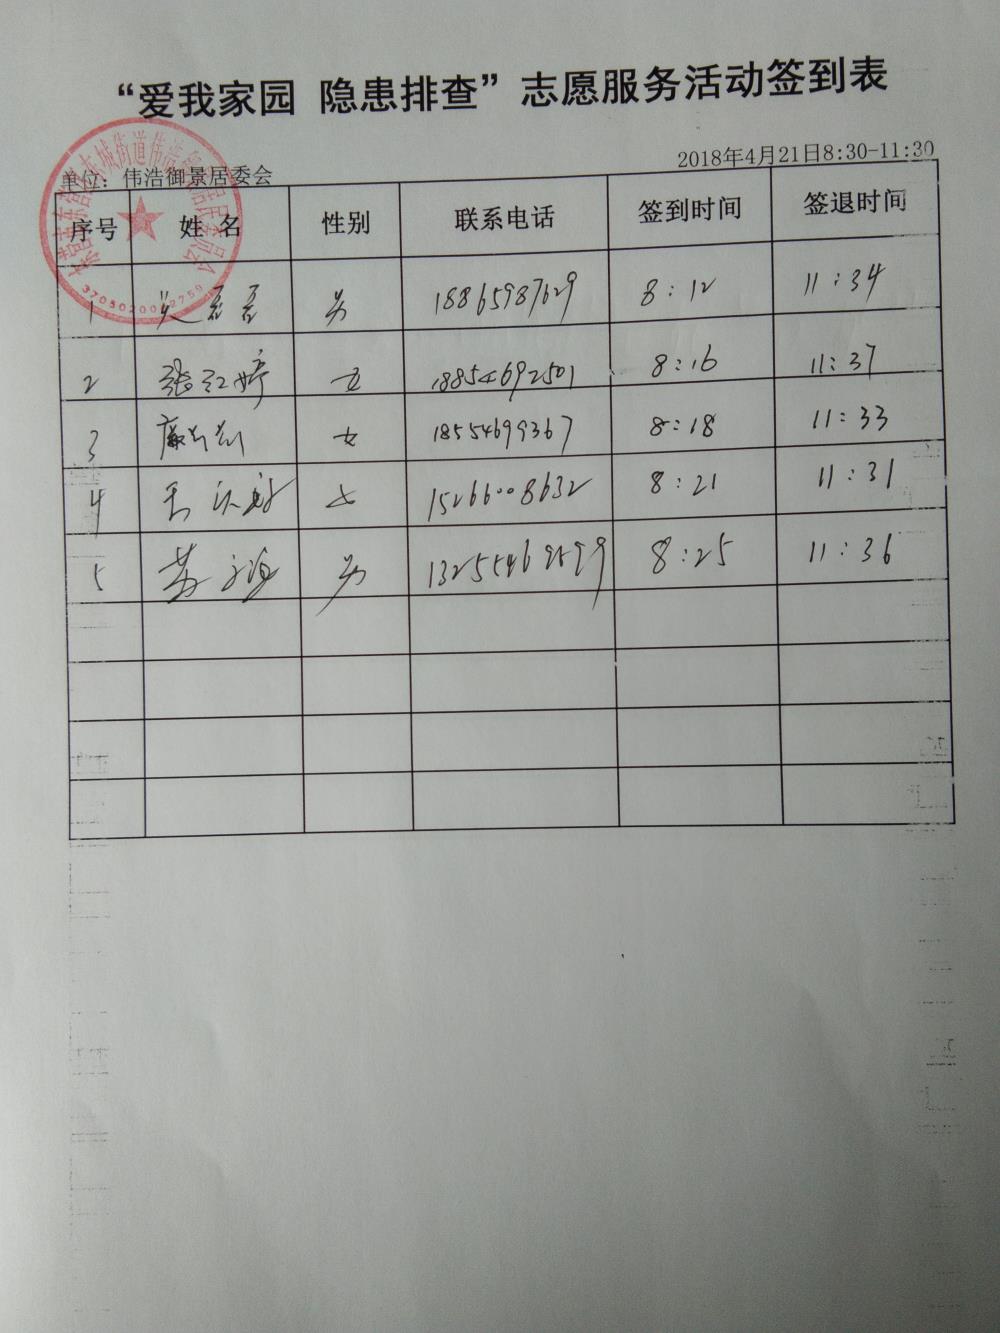 “爱我家园 隐患排查”志愿服务活动签到表
2018年4月21日8:30-11:30
单位：伟浩御景居委会
序号 姓名 性别 联系电话 签到时间 签退时间
1 吴磊磊 男 18865987629 8:12 11:34
2 张红婷 女 18854692501 8:16 11:37
3 女 18554699367 8:18 11:33
4 女 15266008632 8:21 11:31
5 男 13255469599 8:25 11:36
3705020022759